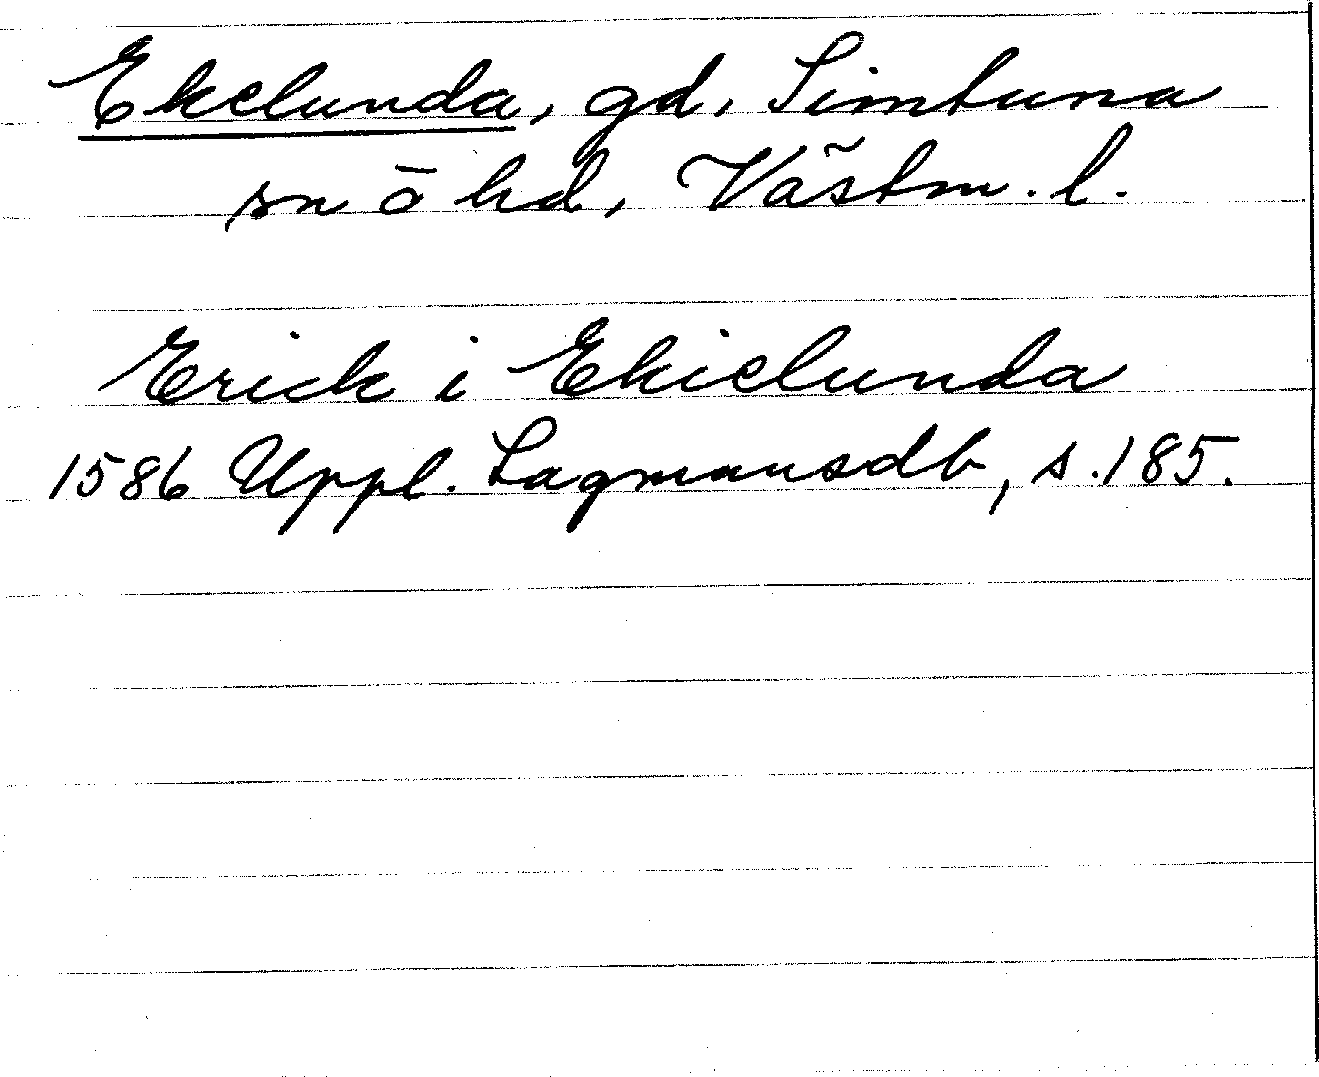 Ekelunda, gd, Simtuna
sn o hd, Västm. l.
Erick i Ekielunda
1586 Uppl. Lagmansdb, s. 185.